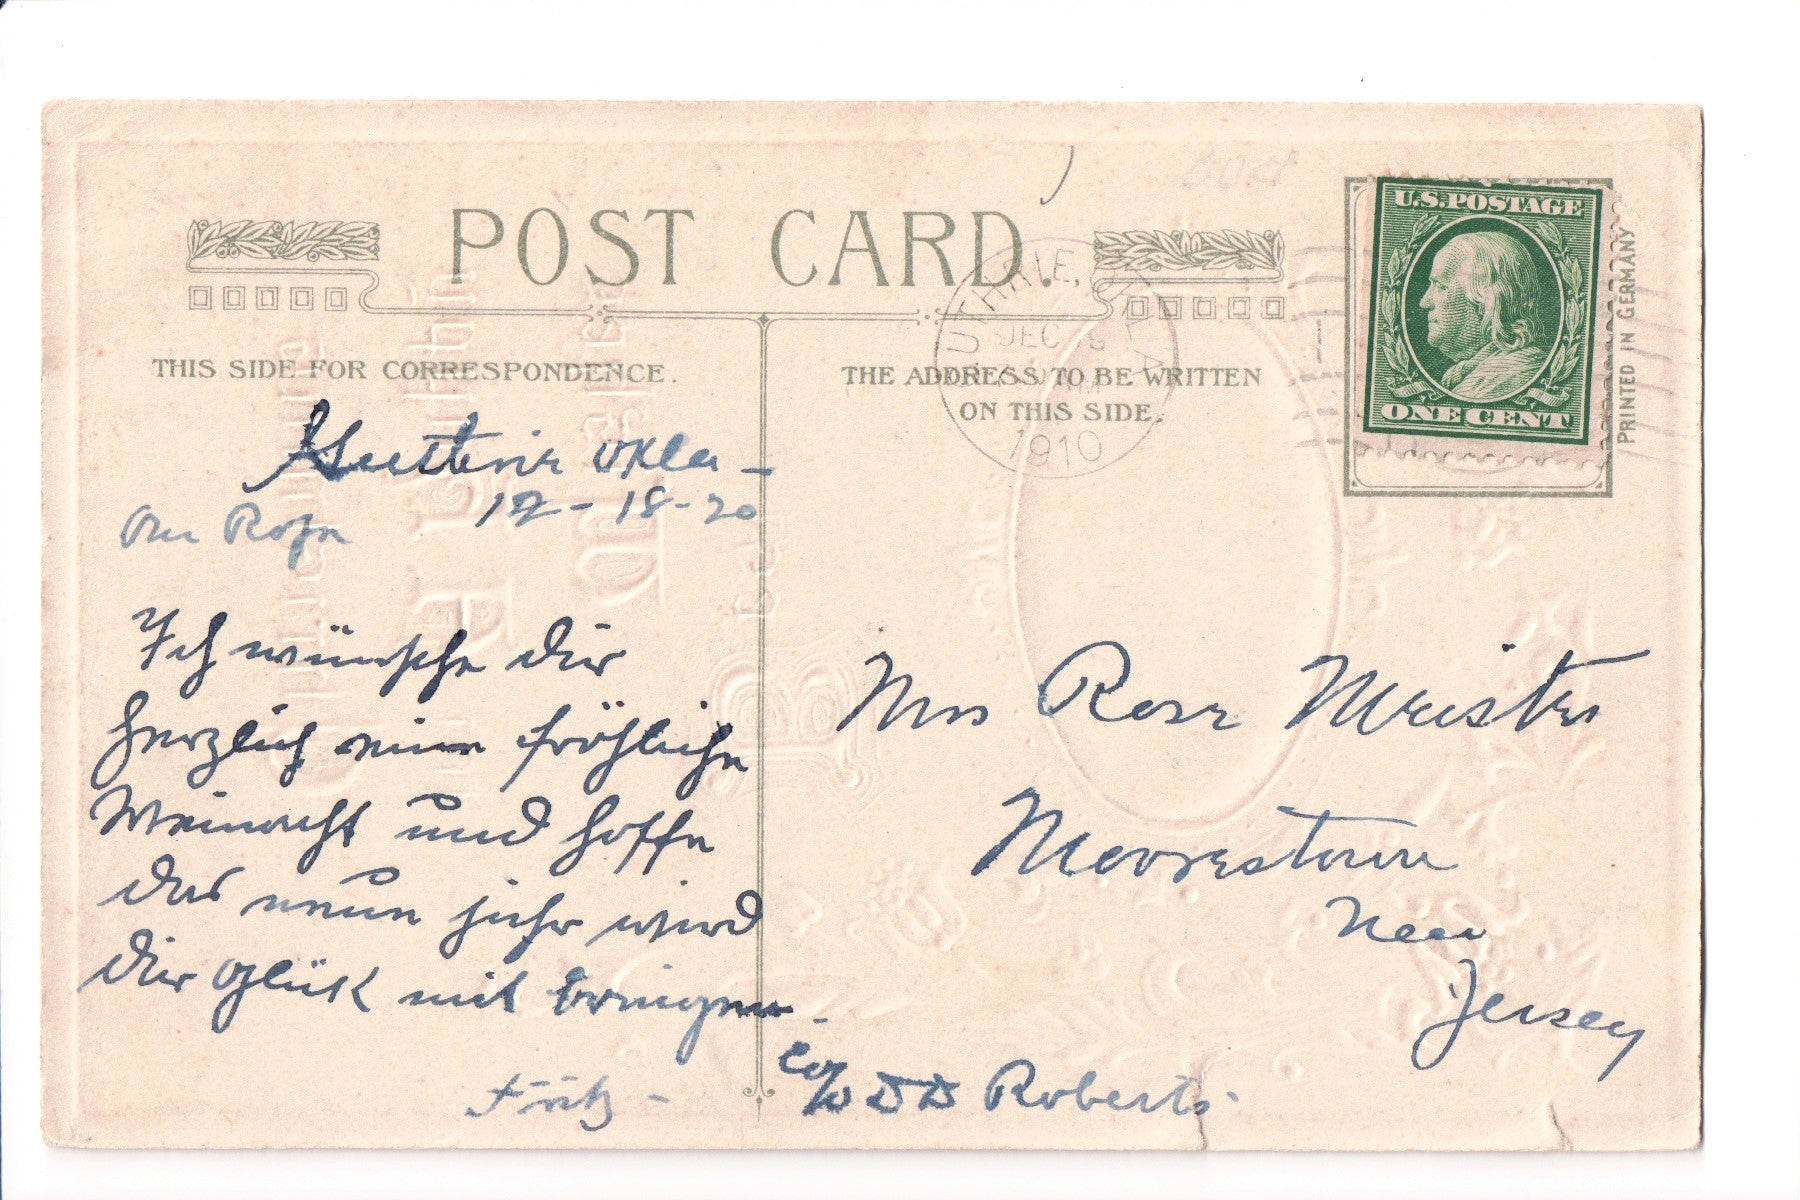 POST CARD.
THIS SIDE FOR CORRESPONDENCE.
Guthrie Okla -
12-18-20
An Rosa
Ich wünsche dir
herzlich eine fröhliche
Weinacht und hoffe
das neue jahr wird
dir Glück mit bringen.
Fritz -
THE ADDRESS TO BE WRITTEN
ON THIS SIDE.
GUTHRIE, OKLA.
DEC
1910
U.S. POSTAGE
ONE CENT
PRINTED IN GERMANY
Mrs Rose Meister
Moorestown
New
Jersey
c/o D D Roberts.